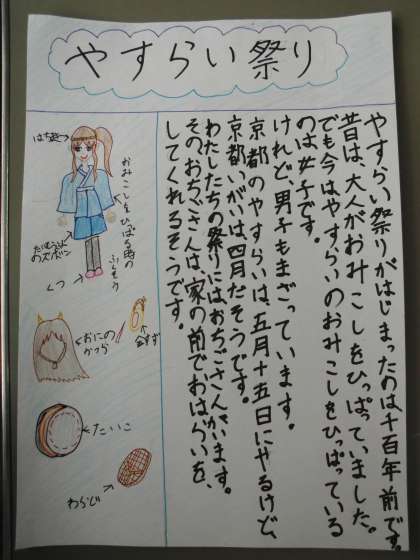 やすらい祭り
やすらい祭りがはじまったのは千百年前です。
昔は、大人がおみこしをひっぱっていました。
でも今はやすらいのおみこしをひっぱっている
のは女子です。
けれど、男子もまざっています。
京都のやすらいは、五月十五日にやるけど、
京都いがいは四月だそうです。
わたしたちの祭りにはおちごさんがいます。
そのおちごさんは、家の前でおはらいを、
してくれるそうです。
おみこしをひっぱる時の
ふくそう
くつ
おにの
かつら
たいこ
わらじ